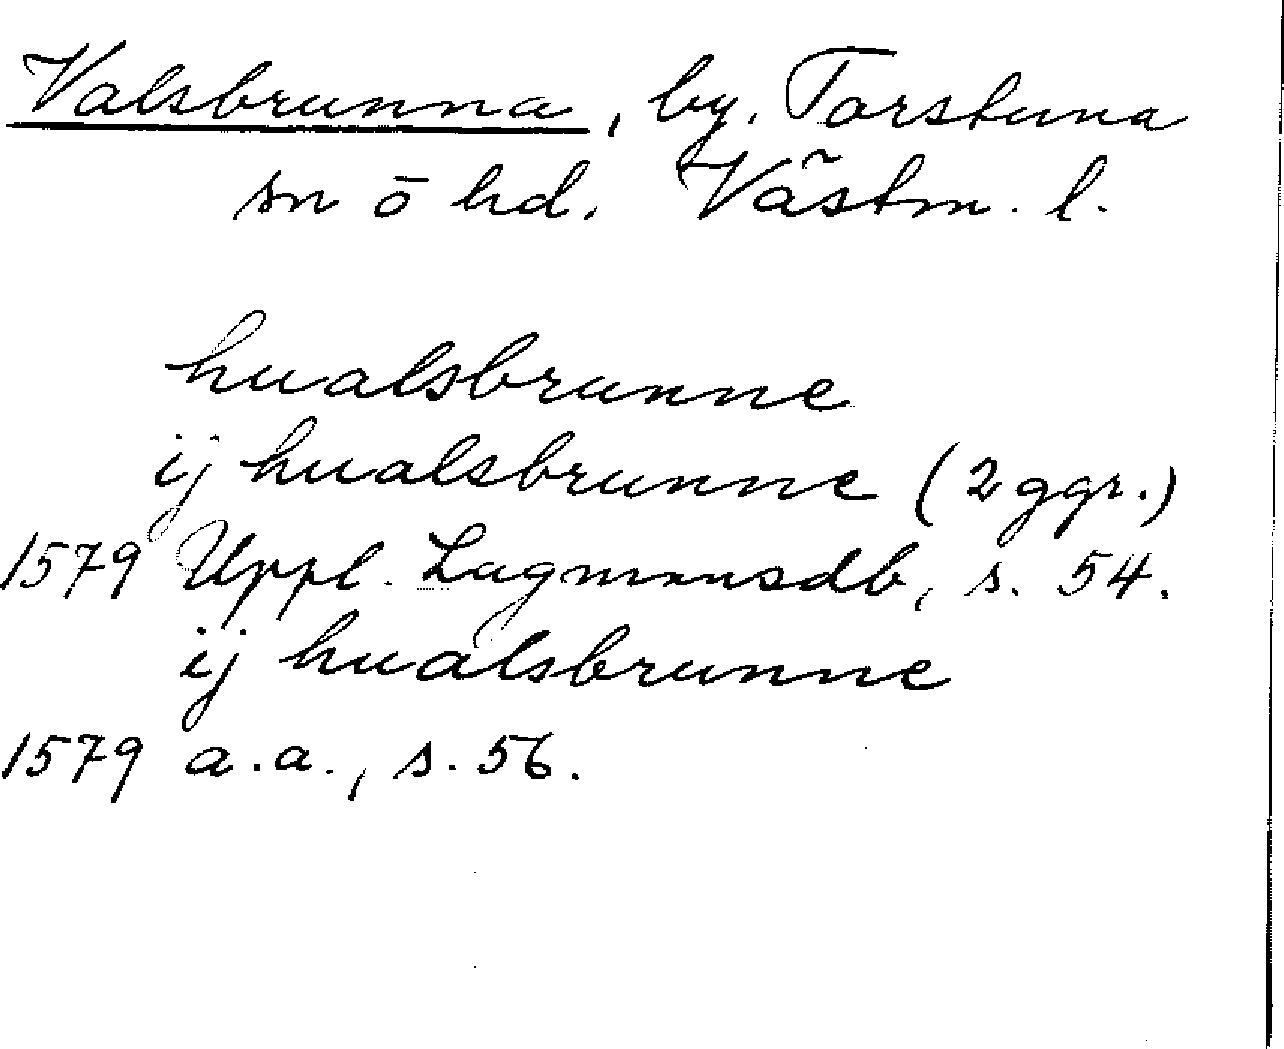 Valsbrunna, by, Torstuna
sn ō hd. Västm. l.
hualsbrunne
ij hualsbrunne (2 ggr.)
1579 Uppl. Lagmansdb, s. 54.
ij hualsbrunne
1579 a.a., s. 56.